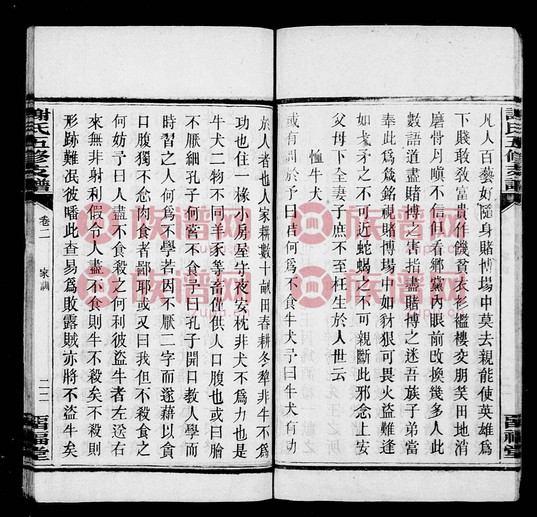 謝氏五修支譜
凡人百藝好隨身賭博場中莫去親能使英雄爲
下賤敢敎富貴作饑貧衣衫襤褸交朋笑田地消
磨骨肉嗔不信但看鄕黨內眼前改換幾多人此
數語道盡賭博之害指盡賭博之迷吾族子弟當
奉此爲箴銘視賭博場中如豺狠可畏火盜難逢
如戈矛之不可近蛇蝎之不可親斷此邪念上安
父母下全妻子庶不至枉生於人世云
恤牛犬
或有謂於予曰君何爲不食牛犬予曰牛犬有功
酉福堂
於人者也人家耕數十畝田春耕冬犂非牛不爲
功也住一椽小房屋守夜安枕非犬不爲力也是
牛犬二物不同羊豕等畜僅供人口腹也或曰膾
不厭細孔子何嘗不食予曰孔子開口敎人學而
時習之人何爲不學若因不厭二字而遂藉以食
口腹獨不念肉食者鄙耶或又曰我但不殺食之
何妨予曰人盡不食殺之何利彼盜牛者左送右
來無非射利假令人盡不食則牛不殺矣不殺則
形跡難泯彼皤此查易爲敗露賊亦將不盜牛矣
謝氏五修支譜
卷二
家訓
二二
酉福堂
族譜网
族譜网
族譜网
族譜网
族譜网
族譜网